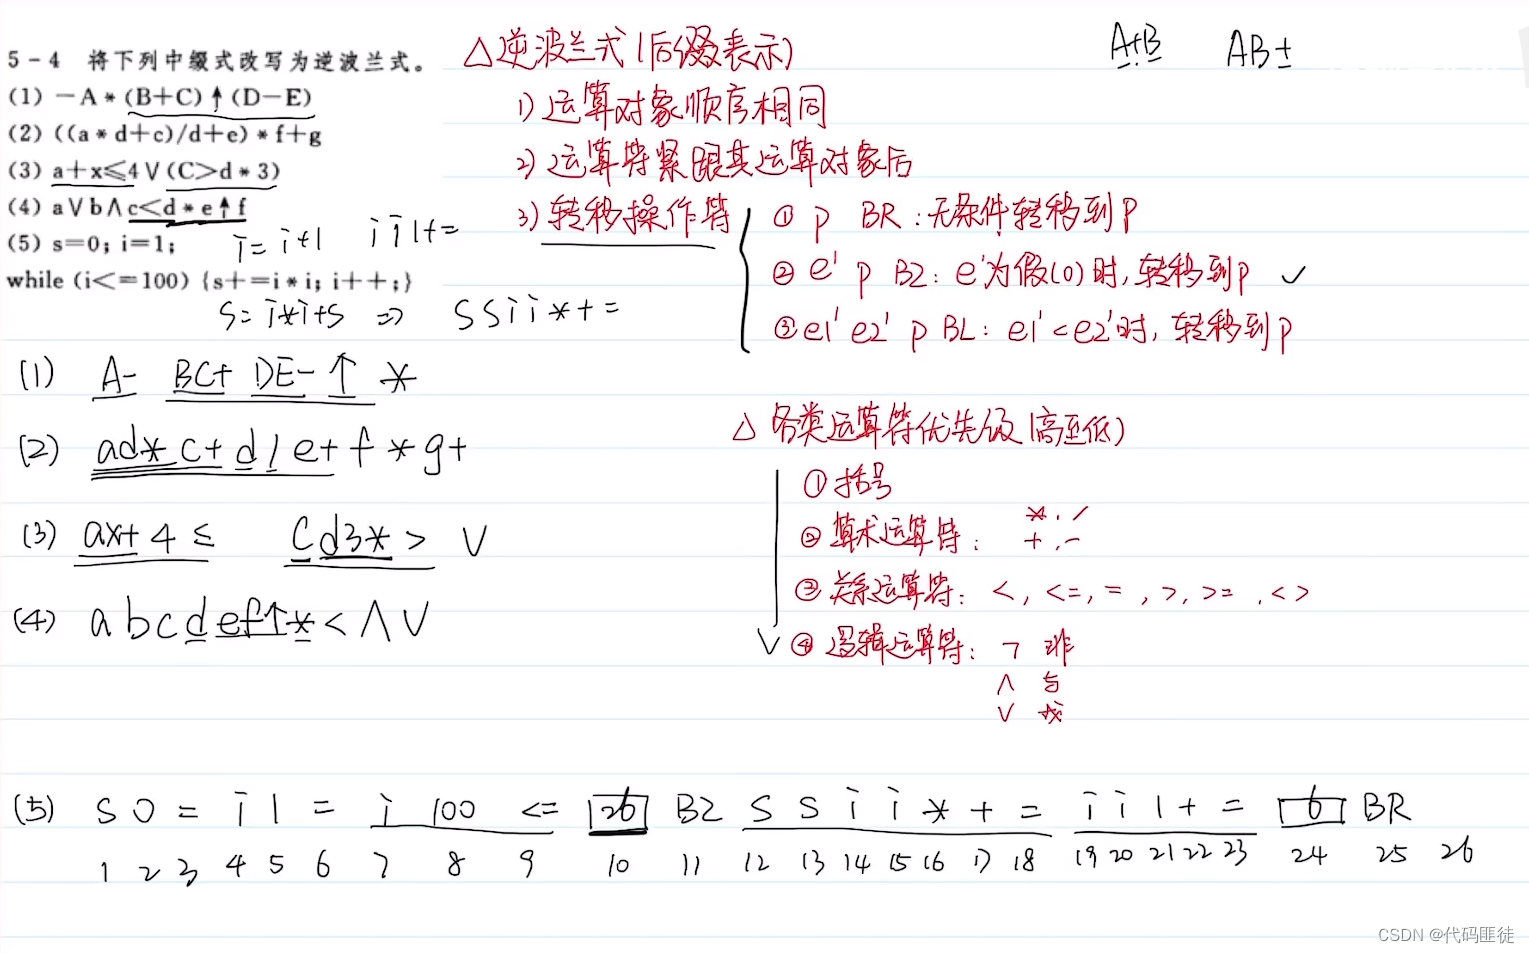 5-4 将下列中缀式改写为逆波兰式。
(1) －A＊(B＋C)↑(D－E)
(2) ((a＊d＋c)/d＋e)＊f＋g
(3) a＋x≤4∨(C＞d＊3)
(4) a∨b∧c＜d＊e↑f
(5) s＝0; i＝1;
while (i＜＝100) {s＋＝i＊i; i＋＋;}
i = i+1 i i 1 + =
S = i*i+S ⇒ S S i i * + =
△ 逆波兰式(后缀表示)
A+B AB+
1) 运算对象顺序相同
2) 运算符紧跟其运算对象后
3) 转移操作符
① P BR：无条件转移到P
② e' P BZ：e'为假(0)时,转移到P ✓
③ e1' e2' P BL：e1'<e2'时,转移到P
(1) A- BC+ DE- ↑ *
(2) ad* c+ d / e+ f * g+
(3) ax+ 4 ≤ C d3* > ∨
(4) a b c d e f ↑ * < ∧ ∨
△ 各类运算符优先级(高至低)
① 括号
② 算术运算符：*, /
+, -
③ 关系运算符：<, <=, =, >, >=, <>
④ 逻辑运算符：¬ 非
∧ 与
∨ 或
(5) S 0 = i 1 = i 100 <= 26 BZ S S i i * + = i i 1 + = 6 BR
1 2 3 4 5 6 7 8 9 10 11 12 13 14 15 16 17 18 19 20 21 22 23 24 25 26
CSDN @代码匪徒